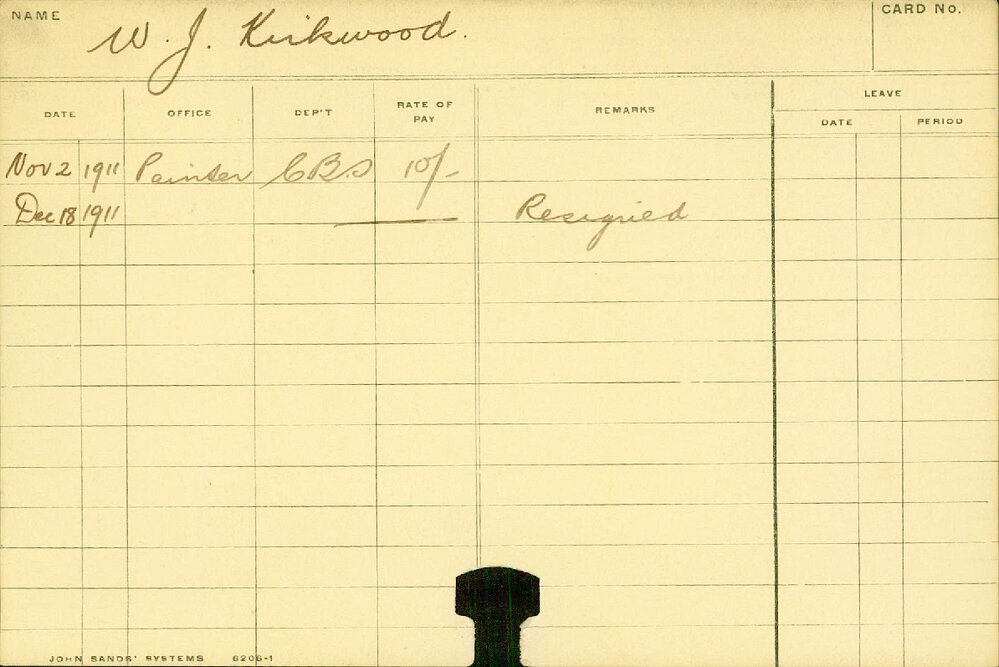 NAME W. J. Kirkwood. CARD No.
DATE OFFICE DEP'T RATE OF PAY REMARKS LEAVE
DATE PERIOD
Nov 2 1911 Painter CBS 10/-
Dec 18 1911 Resigned
JOHN SANDS' SYSTEMS 6206-1